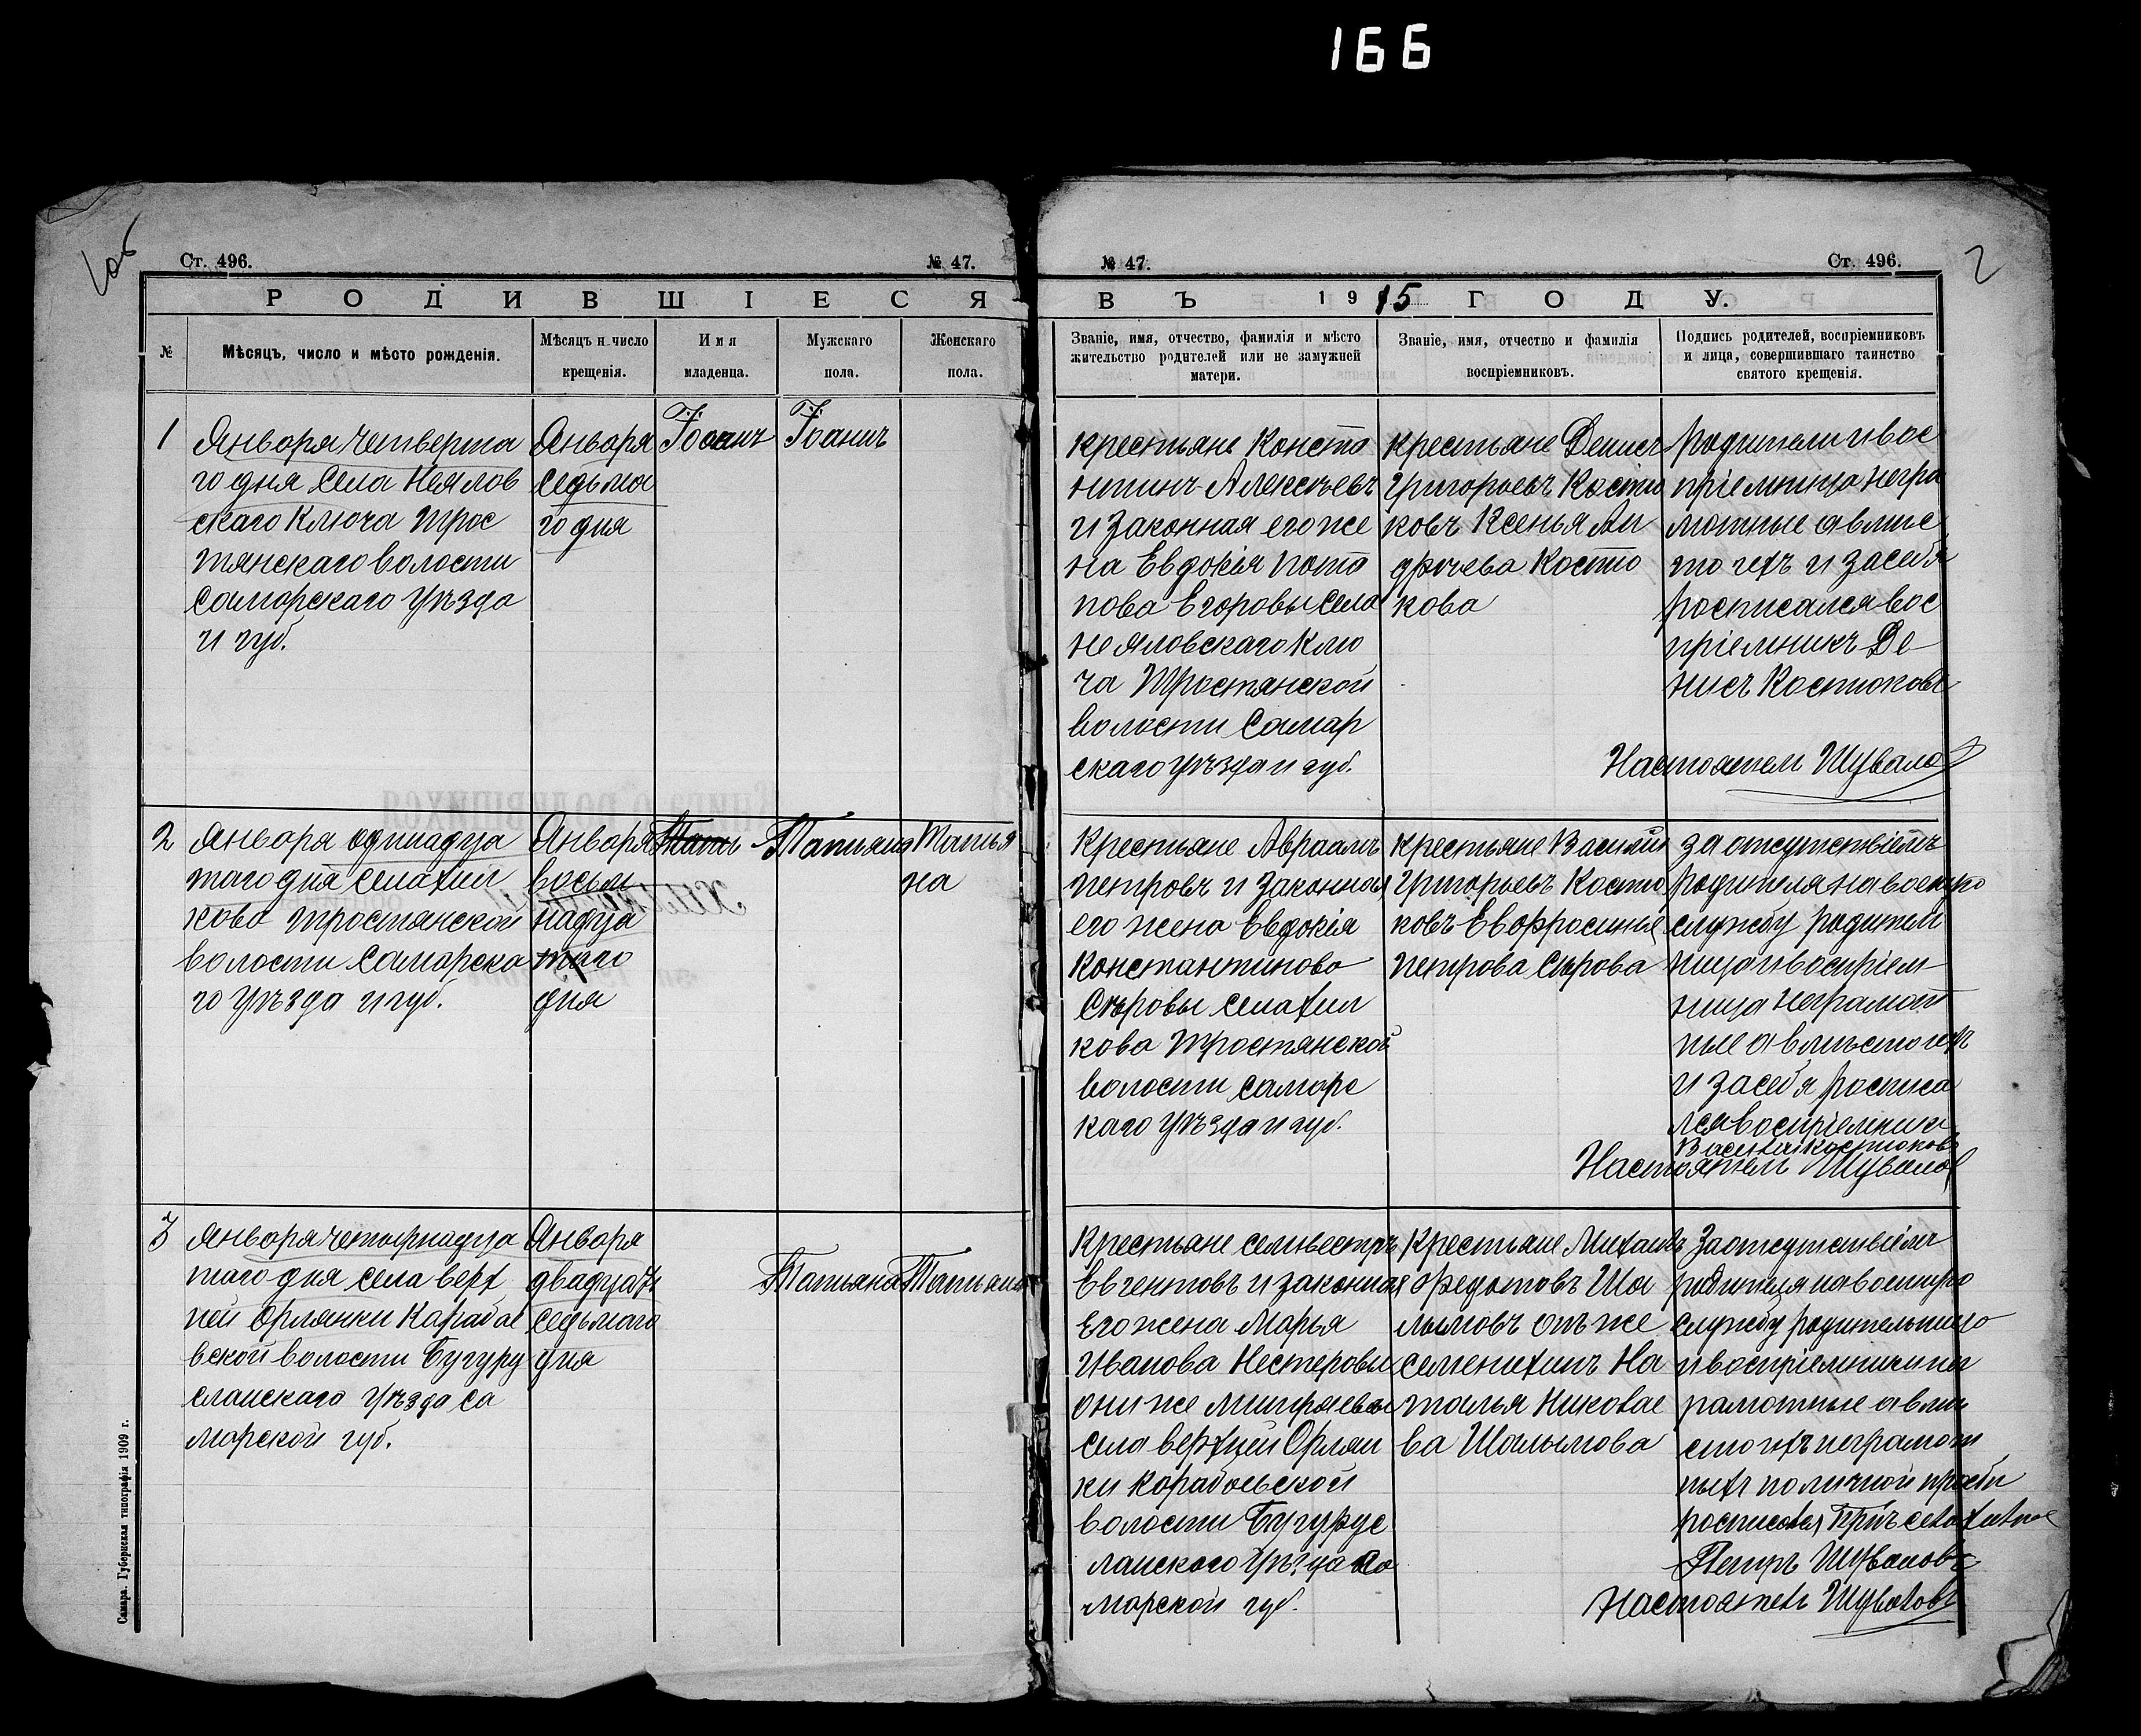 166
1об
Ст. 496.
№ 47.
РОДИВШІЕСЯ
№
Мѣсяцъ, число и мѣсто рожденія.
Мѣсяцъ и число
крещенія.
Имя
младенца.
Мужскаго
пола.
Женскаго
пола.
1
Января четверта
го дня села Неялов
скаго Ключа Трос
тянскаго волости
Самарскаго уѣзда
и губ.
Января
седьма
го дня
Іоаннъ
Іоаннъ
2
Января одинадца
таго дня села Хил
кова Тростянской
волости Самарска
го уѣзда и губ.
Января
восьм
надца
таго
дня
Татьяна
Татья
на
3
Января четырнадца
таго дня села Верх
ней Орлянки Карабае
вской волости Бугуру
сланскаго уѣзда Са
марской губ.
Января
двадцать
седьмого
дня
Татьяна
Татьяна
Самара. Губернская типографія 1909 г.
№ 47.
Ст. 496.
2
ВЪ 1915 ГОДУ.
Званіе, имя, отчество, фамилія и мѣсто
жительство родителей или не замужней
матери.
Званіе, имя, отчество и фамилія
воспріемниковъ.
Подпись родителей, воспріемниковъ
и лица, совершившаго таинство
святого крещенія.
крестьяне Конста
нтинъ Алексѣевъ
и законная его же
на Евдокія Пота
пова Егоровы села
Неяловскаго Клю
ча Тростянской
волости Самар
скаго уѣзда и губ.
крестьяне Денисъ
Григорьевъ Костю
ковъ Ксенья Ан
дреева Костю
кова
родители и вос
пріемница негра
мотные а вмѣс
то ихъ и за себя
росписался вос
пріемникъ Де
нисъ Костюковъ
Настоятель Шувалов
Крестьяне Авраамъ
Петровъ и законная
его жена Евдокія
Константинова
Сѣровы села Хил
кова Тростянской
волости Самарс
каго уѣзда и губ.
крестьяне Василій
Григорьевъ Костю
ковъ Евфросинья
Петрова Сѣрова
за отсутствіемъ
родителя на военую
службу родитель
ница и воспріем
ница неграмот
ные а вмѣсто ихъ
и за себя росписа
лся воспріемникъ
Василій Костюковъ
Настоятель Шувалов
Крестьяне Семвестръ
Евгентовъ и законная
его жена Марья
Иванова Нестеровы
они же Митряевы
села Верхней Орлян
ки Карабаевской
волости Бугурус
ланскаго уѣзда Са
марской губ.
Крестьяне Михаилъ
Федотовъ Ша
лымовъ онъ же
Семенихинъ На
талья Николае
ва Шалымова
За отсутствіемъ
родителя на военую
службу родительница
и воспріемники нег
рамотные а вмѣ
сто ихъ неграмот
ныхъ по личной просьбѣ
росписался
Петръ Шуваловъ
Настоятель Шуваловъ